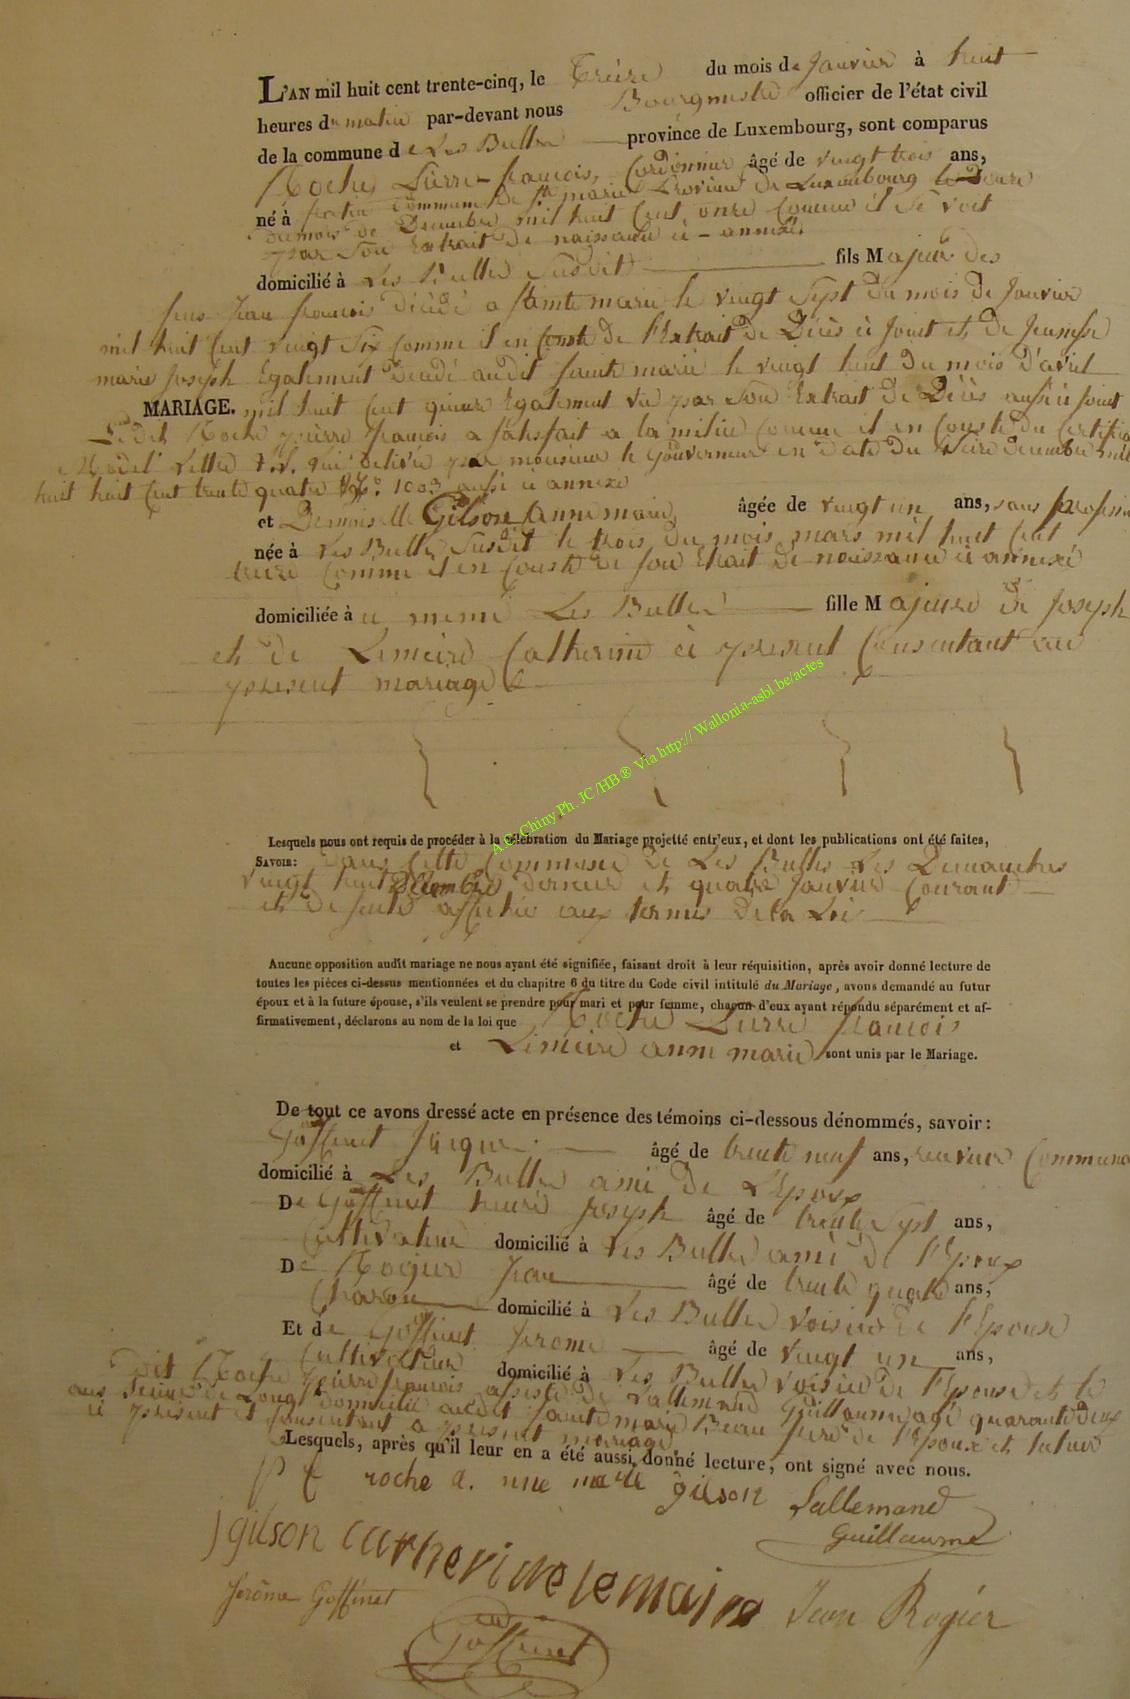 L'AN mil huit cent trente-cinq, le treize du mois de Janvier à huit
heures du matin par-devant nous Bourgmestre officier de l'état civil
de la commune de Les Bulles province de Luxembourg, sont comparus
Roche, Pierre-françois, Cordonnier âgé de vingt trois ans,
né à fratin Commune de Ste marie Province de Luxembourg le Douze
du mois de Decembre mil huit Cent onze Comme il se voit
par son Extrait de naissance ci-annexé.
domicilié à Les Bulles susdit fils Majeur des
feus Jean françois Décédé a Sainte marie le vingt Sept du mois de Janvier
mil huit Cent vingt Six Comme il en Conste de l'Extrait de Décès ci Joint et de Jeunesse
marie Joseph Egalement Décédé audit Sainte marie le vingt huit Du mois D'avril
MARIAGE. mil huit Cent quinze Egalement vu par son Extrait de Décès aussi ci Joint
Ledit Roche pierre françois a satisfait a la milice Comme il en Conste du Certificat
Modèl Lettre delivré par monsieur le Gouverneur en Date Du Seize decembre mil
huit huit Cent trente quatre No. 1003 aussi ci annexé
et Demoiselle Gilson Anne marie, âgée de vingt un ans, sans profession
née à Les Bulles Susdit le trois du mois mars mil huit Cent
treize Comme il en Conste de son Etrait De naissance ci annexé
domiciliée à ci meme Les Bulles fille Majeure de Joseph
et de Lemaire Catherine ci present Consentant au
present mariage
Lesquels nous ont requis de procéder à la célébration du Mariage projetté entr'eux, et dont les publications ont été faites,
SAVOIR: Dans Cette Commune de Les Bulles Les Dimanches
vingt huit Décembre dernier et quatre Janvier Courant
et de suite affichée aux termes de la Loi
Aucune opposition audit mariage ne nous ayant été signifiée, faisant droit à leur réquisition, après avoir donné lecture de
toutes les pièces ci-dessus mentionnées et du chapitre 6 du titre du Code civil intitulé du Mariage, avons demandé au futur
époux et à la future épouse, s'ils veulent se prendre pour mari et pour femme, chacun d'eux ayant répondu séparément et af-
firmativement, déclarons au nom de la loi que Roche Pierre françois
et Lemaire anne marie sont unis par le Mariage.
De tout ce avons dressé acte en présence des témoins ci-dessous dénommés, savoir:
Goffinet Jacque âgé de trente neuf ans, receveur Communal
domicilié à Les Bulles ami de L'Epoux
De Goffinet henri Joseph âgé de trente Sept ans,
Cultivateur domicilié à Les Bulles ami de l'Epoux
De Rogier Jean âgé de trente quatre ans,
Charon domicilié à Les Bulles voisin de l'Epouse
Et de Goffinet Jerome âgé de vingt un ans,
Cultivateur domicilié à Les Bulles voisin de l'Epouse et le
Dit Roche pierre françois assisté de Lallemand Guillaume agé quarante deux
ans domicilié audit Sainte marie Beau frere de l'Epoux et tuteur
ci present et Consentant a present mariage.
Lesquels, après qu'il leur en a été aussi donné lecture, ont signé avec nous.
P f roche a. nne marie gilson Lallemand
Guillaume
J gilson catherine lemaire Jean Rogier
Jerôme Goffinet
Goffinet
A.C. Chiny Ph. JC/HB® Via http:// Wallonia-asbl.be/actes